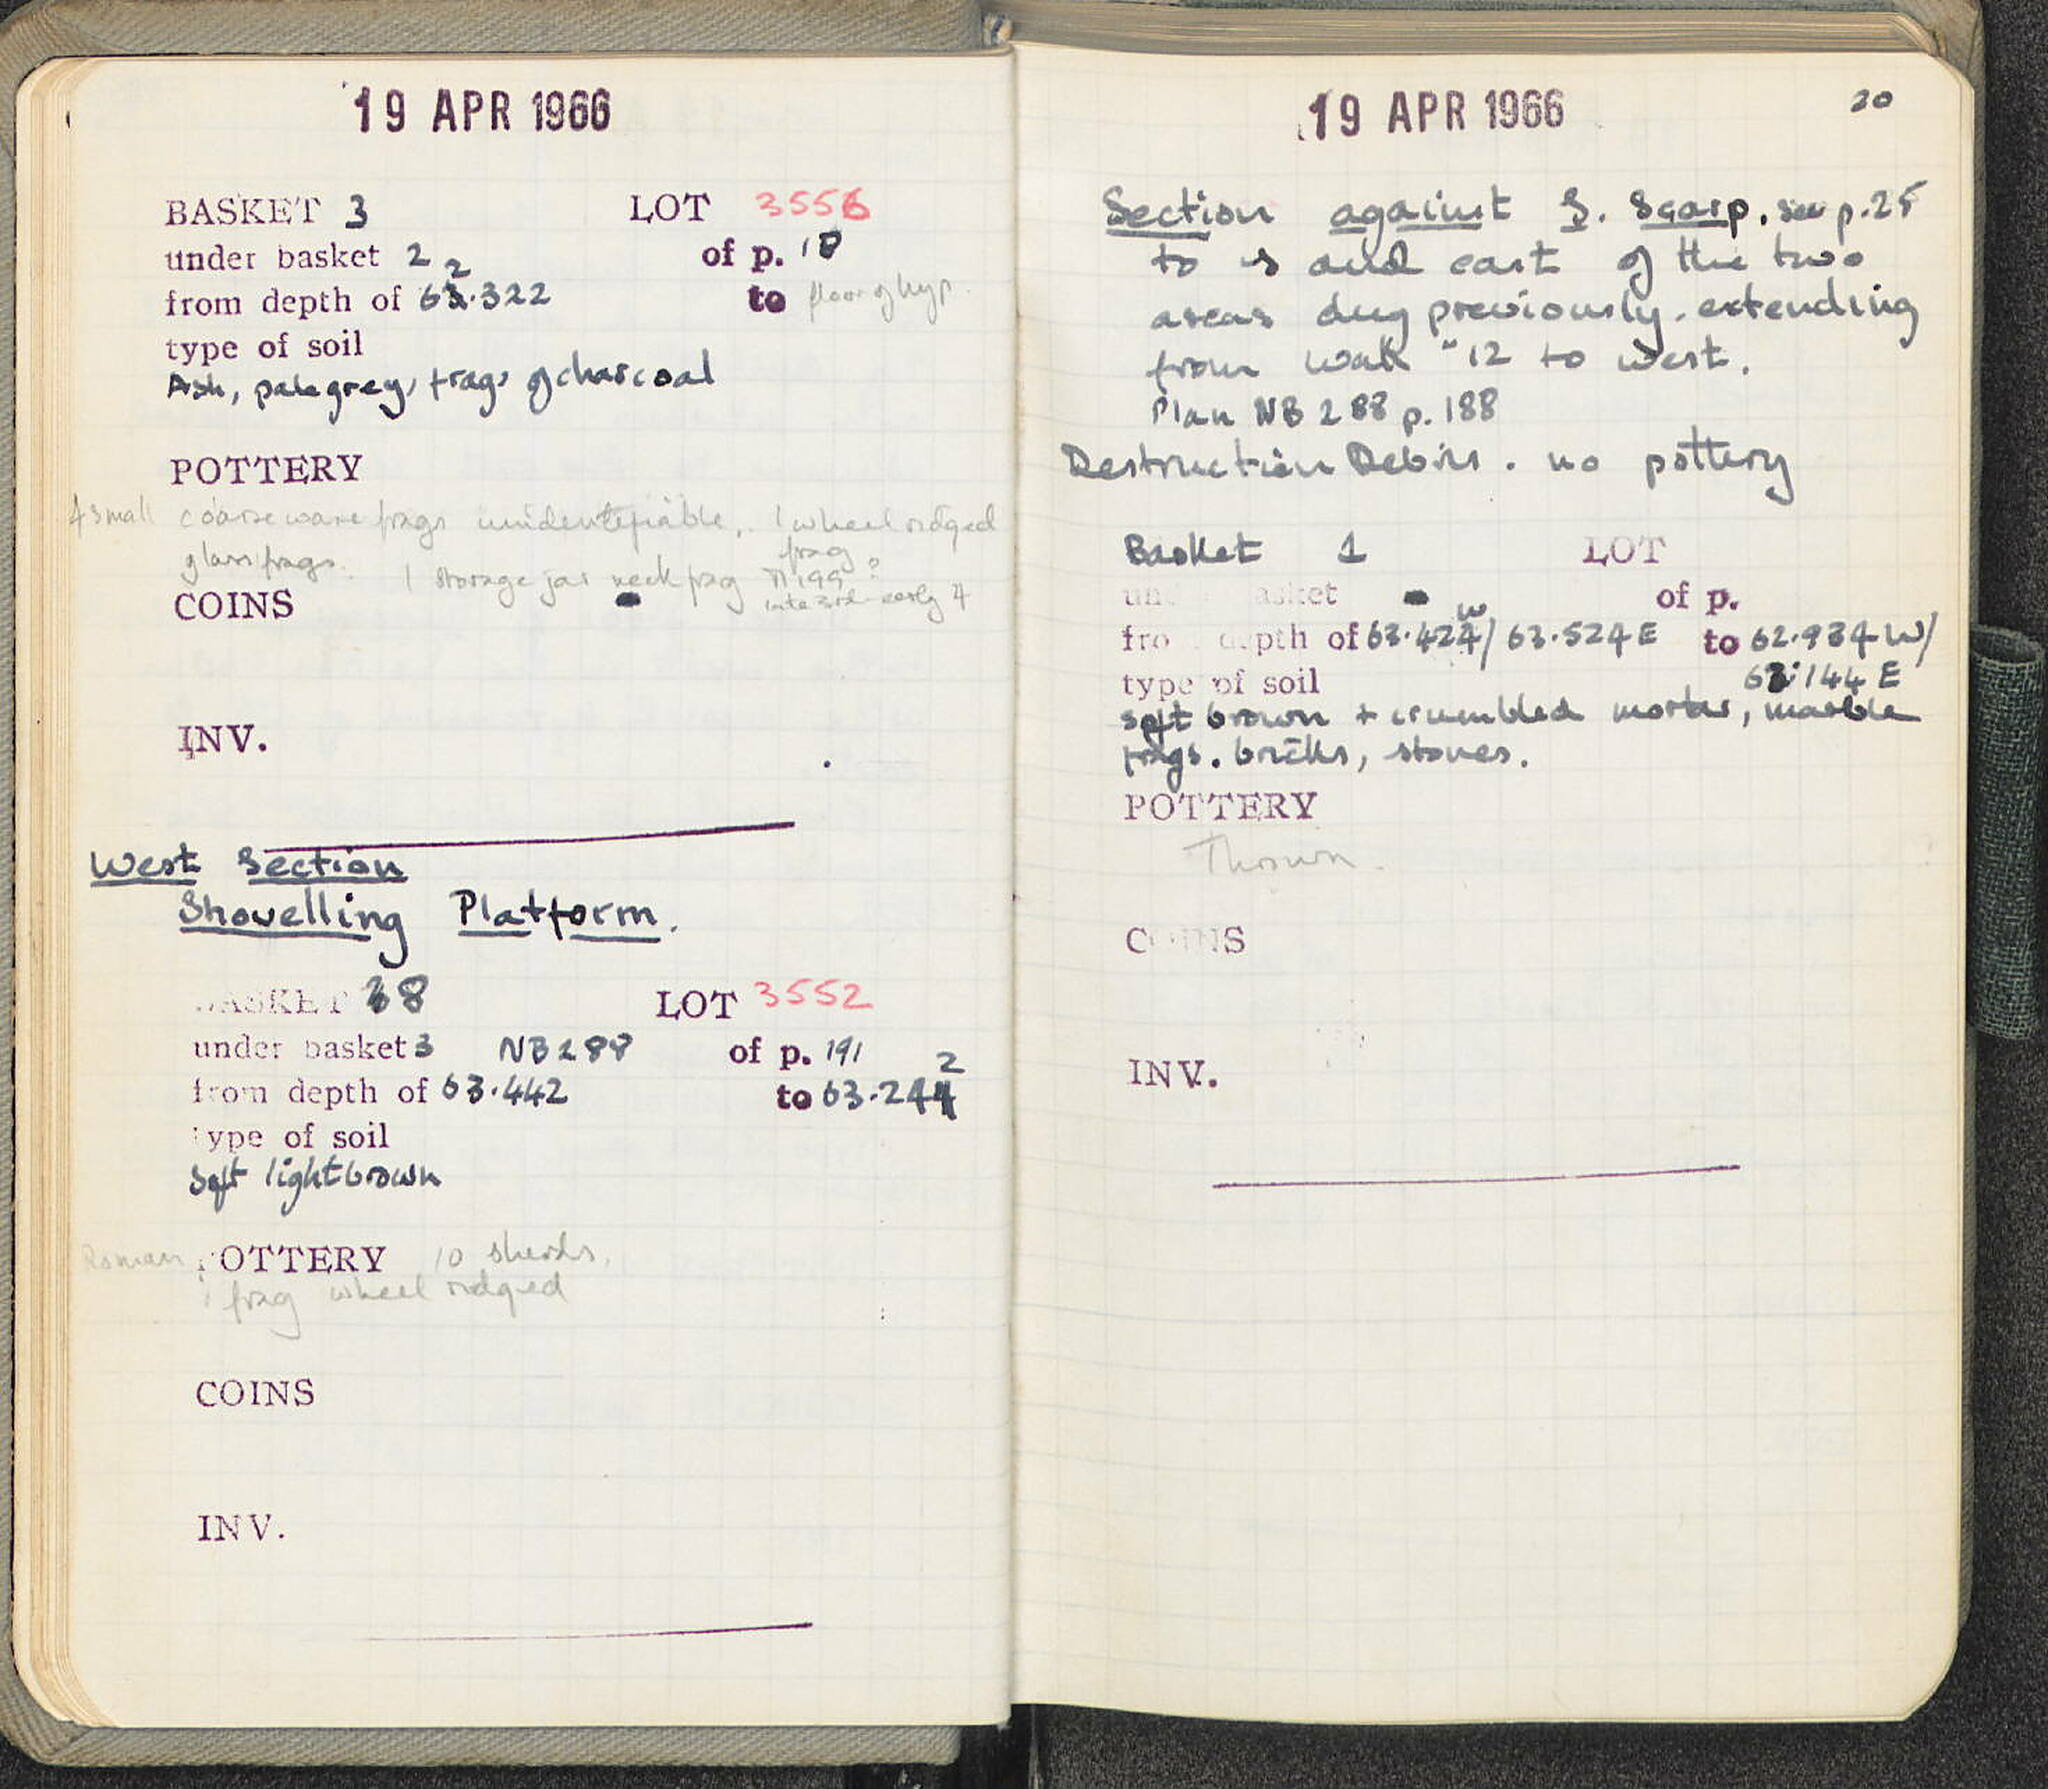 19 APR 1966
BASKET 3 LOT 3556
under basket 2 of p. 18
from depth of 62.322 to floor of hyp.
type of soil
Ash, pale grey, frags of charcoal
POTTERY
4 small coarse ware frags unidentifiable, 1 wheel ridged frag
glass frags. 1 storage jar neck frag M 199?
late 3rd - early 4
COINS
INV.
West Section
Shovelling Platform.
BASKET 38 LOT 3552
under basket 3 NB 288 of p. 191
from depth of 63.442 to 63.242
type of soil
Soft light brown
Roman POTTERY 10 sherds,
1 frag wheel ridged
COINS
INV.
19 APR 1966 20
Section against S. Scarp. see p. 25
to s and east of the two
areas dug previously. extending
from Wall 12 to west.
Plan NB 288 p. 188
Destruction Debris. no pottery
Basket 1 LOT
under basket - of p.
from depth of 63.424 W/ 63.524 E to 62.934 W/
63.144 E
type of soil
Soft brown + crumbled mortar, marble
frags. bricks, stones.
POTTERY
Thrown.
COINS
INV.